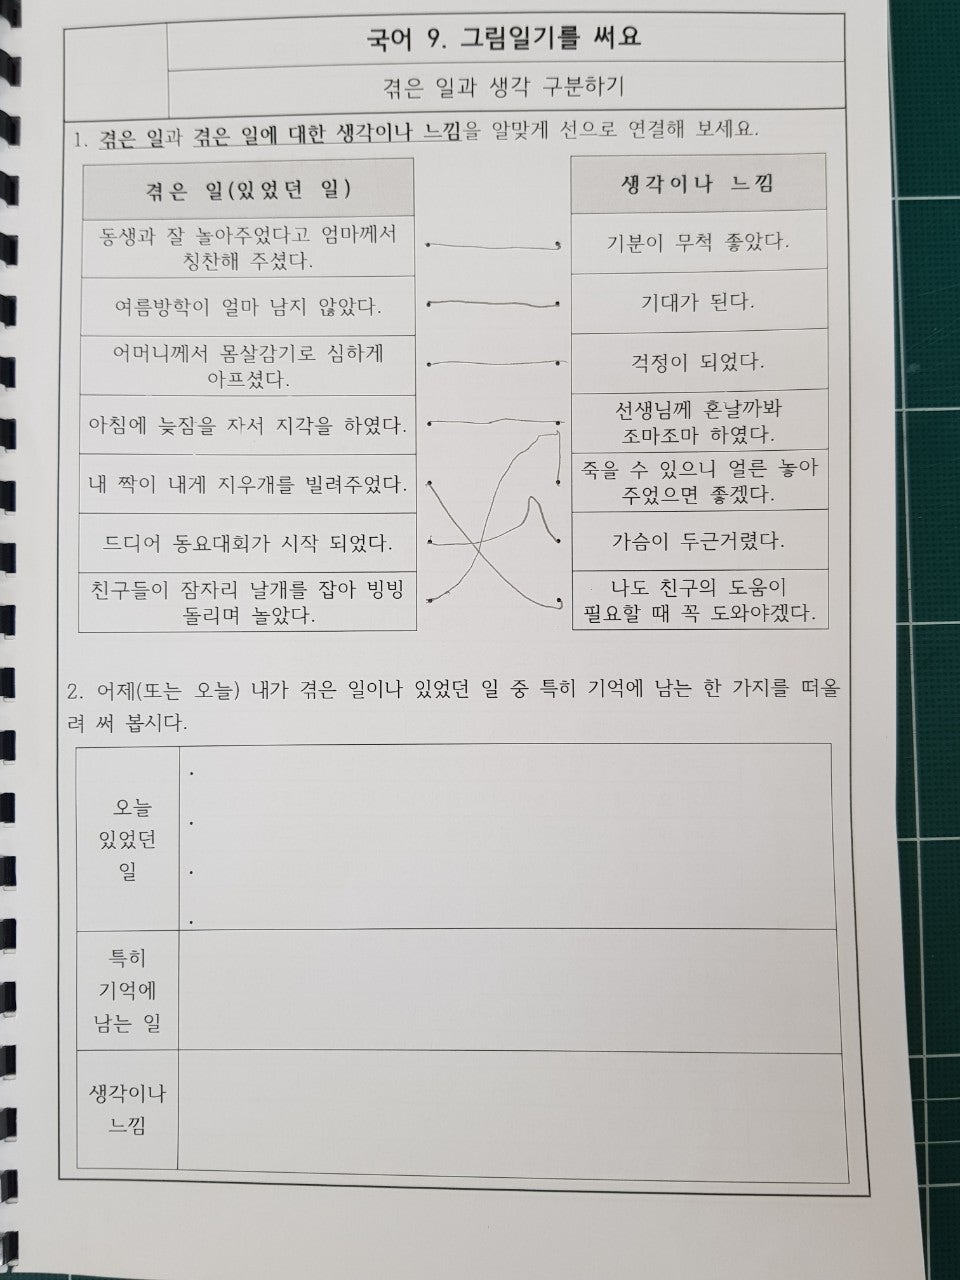 국어 9. 그림일기를 써요
겪은 일과 생각 구분하기
1. 겪은 일과 겪은 일에 대한 생각이나 느낌을 알맞게 선으로 연결해 보세요.
겪은 일(있었던 일)
생각이나 느낌
동생과 잘 놀아주었다고 엄마께서
칭찬해 주셨다.
기분이 무척 좋았다.
여름방학이 얼마 남지 않았다.
기대가 된다.
어머니께서 몸살감기로 심하게
아프셨다.
걱정이 되었다.
아침에 늦잠을 자서 지각을 하였다.
선생님께 혼날까봐
조마조마 하였다.
내 짝이 내게 지우개를 빌려주었다.
죽을 수 있으니 얼른 놓아
주었으면 좋겠다.
드디어 동요대회가 시작 되었다.
가슴이 두근거렸다.
친구들이 잠자리 날개를 잡아 빙빙
돌리며 놀았다.
나도 친구의 도움이
필요할 때 꼭 도와야겠다.
2. 어제(또는 오늘) 내가 겪은 일이나 있었던 일 중 특히 기억에 남는 한 가지를 떠올
려 써 봅시다.
오늘
있었던
일
특히
기억에
남는 일
생각이나
느낌